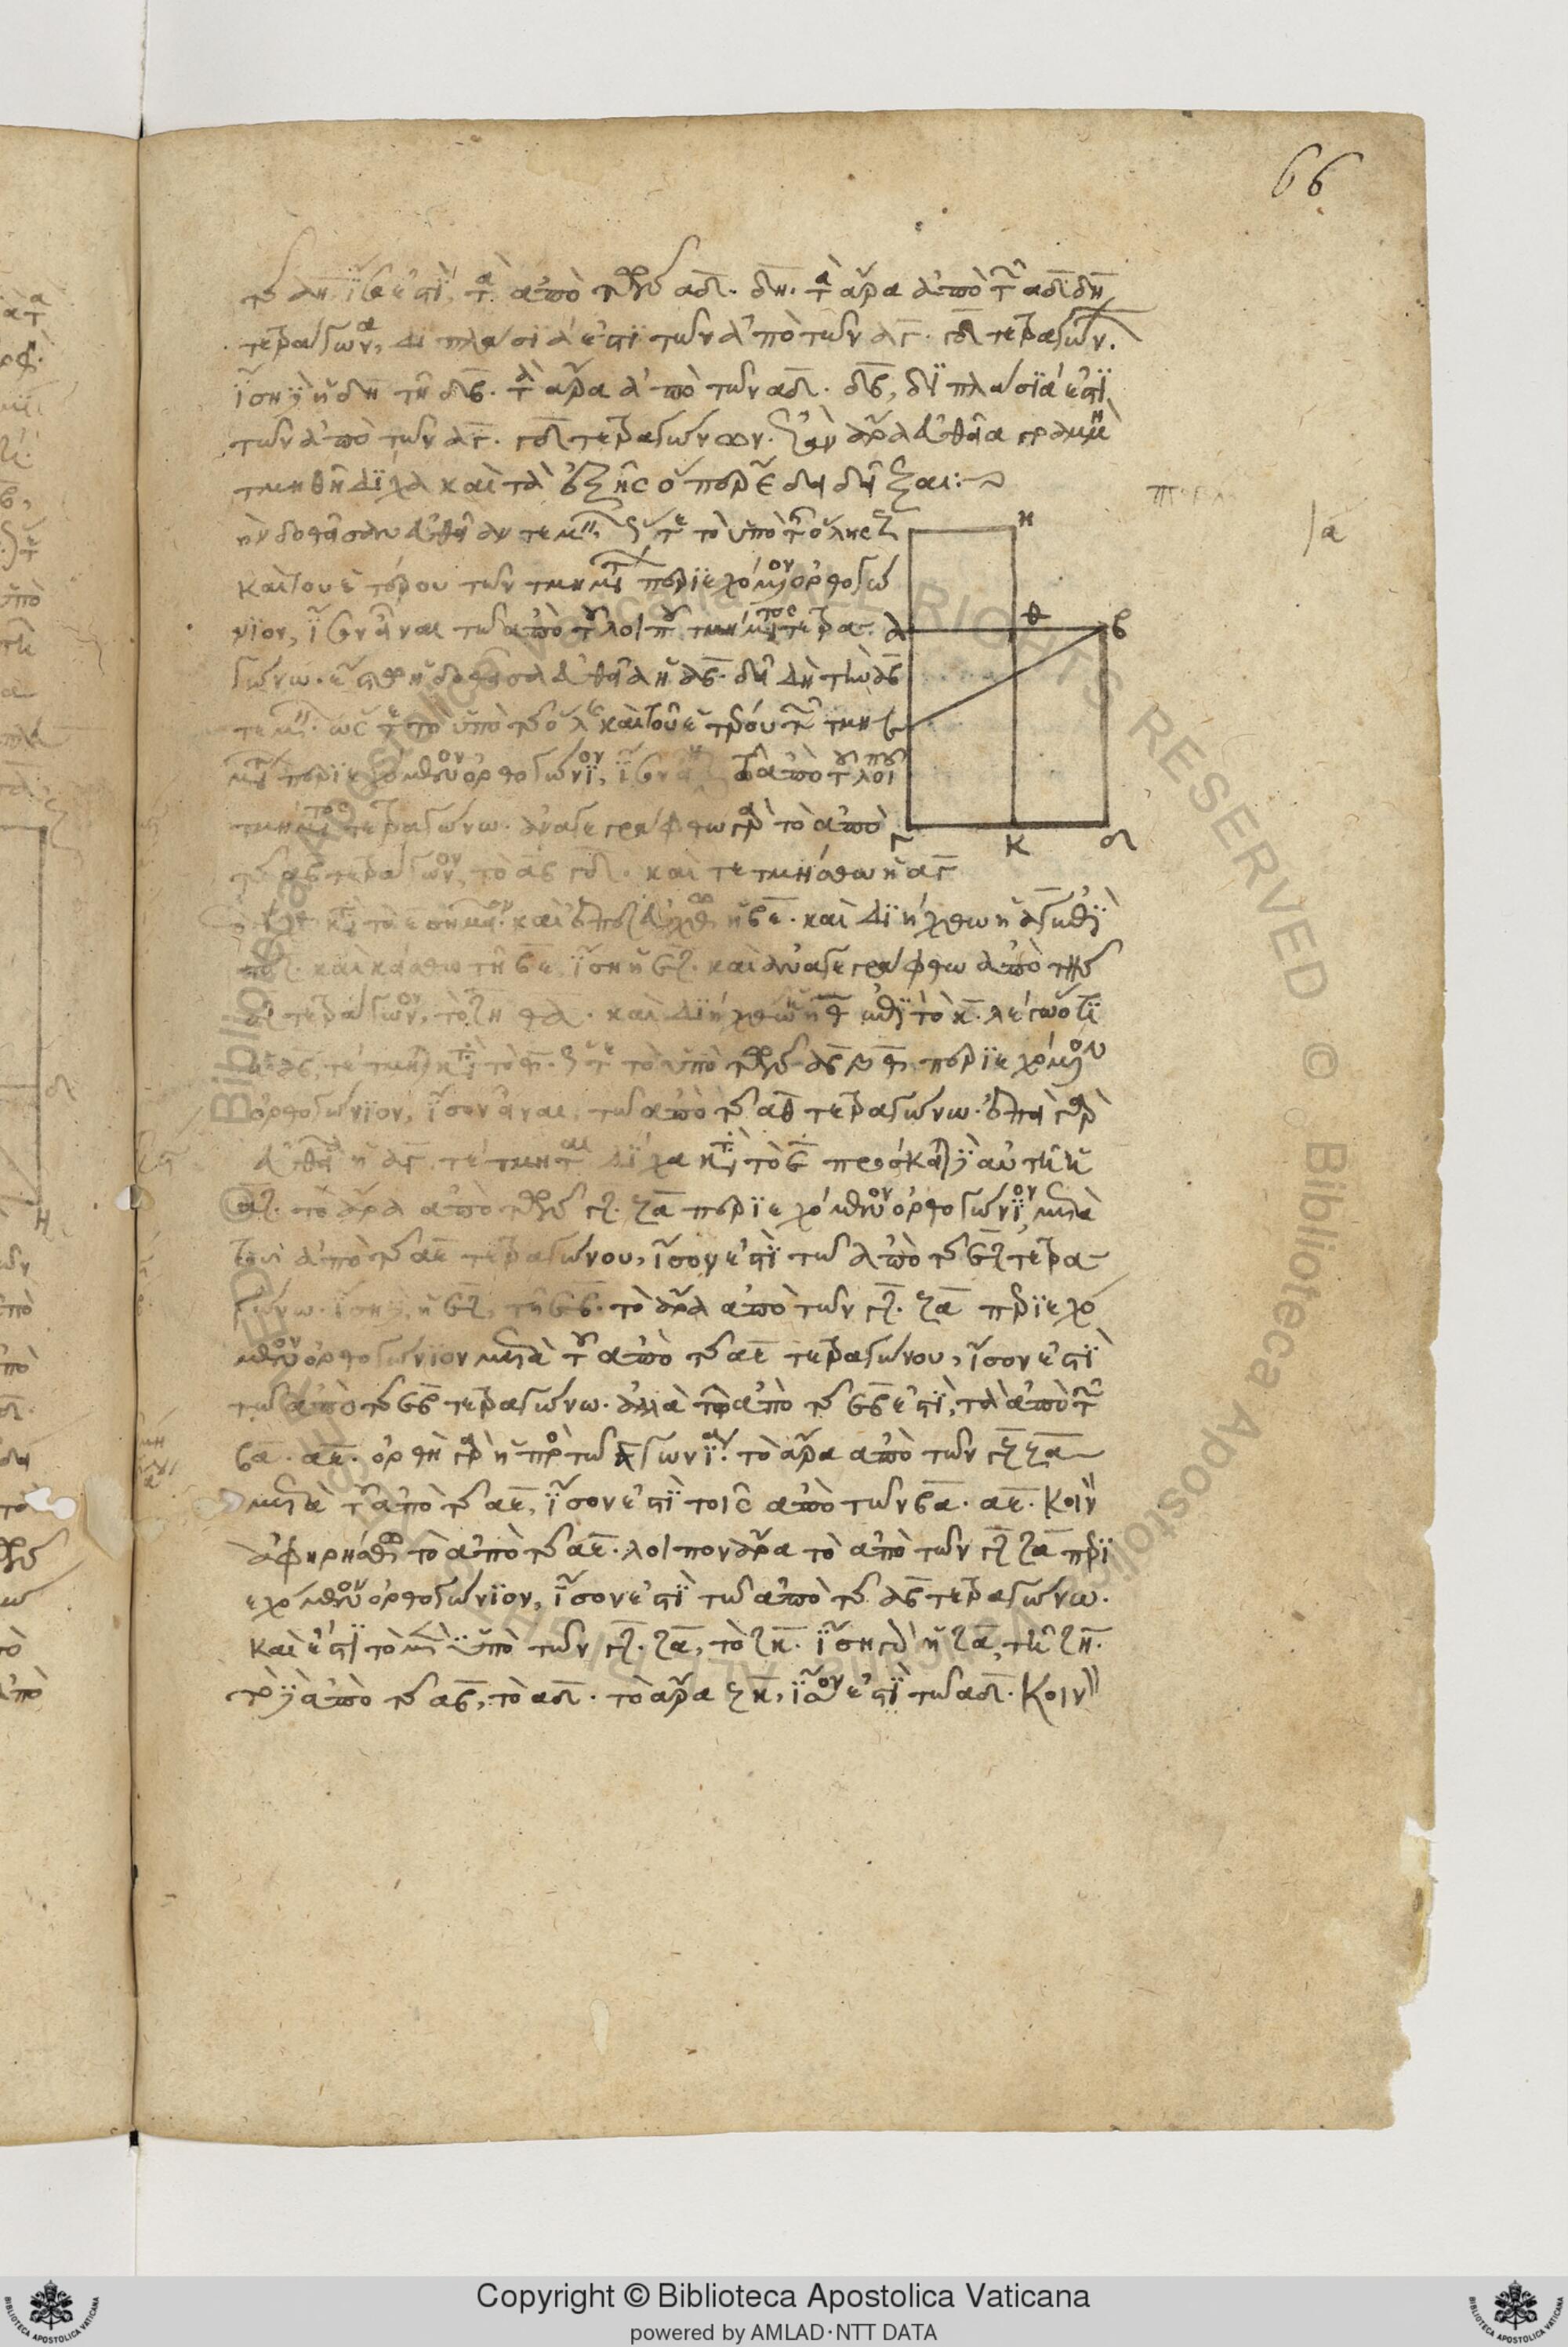 66
τῆς αη ἴσον ἐστὶ, τὰ ἀπὸ τῶν αδ. δη. τὰ ἄρα ἀπὸ τῶν αδ δη
τετράγωνα, διπλάσιά ἐστι τῶν ἀπὸ τῶν αγ. γδ τετραγώνων.
ἴση δὲ ἡ δη τῇ δβ. τὰ ἄρα ἀπὸ τῶν αδ. δβ, διπλάσιά ἐστι
τῶν ἀπὸ τῶν αγ. γδ τετραγώνων. ἐὰν ἄρα εὐθεῖα γραμμὴ
τμηθῇ δίχα καὶ τὰ ἑξῆς ὅπερ ἔδει δεῖξαι:
ὴν δοθεῖσαν εὐθεῖαν τεμεῖν ὥστε τὸ ὑπὸ τῆς ὅλης
καὶ τοῦ ἑτέρου τῶν τμημάτων περιεχόμενον ὀρθογώ
νιον, ἴσον εἶναι τῶ ἀπὸ τοῦ λοιποῦ τμήματος τετρα
γώνω. ἔστω ἡ δοθεῖσα εὐθεῖα ἡ αβ. δεῖ δὴ τὴν αβ
τεμεῖν. ὥστε τὸ ὑπὸ τῆς ὅλης καὶ τοῦ ἑτέρου τῶν τμη
μάτων περιεχόμενον ὀρθογώνιον, ἴσον εἶναι τῶ ἀπὸ τοῦ λοιποῦ
τμήματος τετραγώνω. ἀναγεγράφθω γὰρ τὸ ἀπὸ
τῆς αβ τετράγωνον, τὸ αβ γδ. καὶ τετμήσθω ἡ αγ
δίχα κατὰ τὸ ε σημεῖον. καὶ ἐπεζεύχθω ἡ βε. καὶ διήχθω ἡ αγ ἐπὶ
τὸ ζ. καὶ κείσθω τῇ βε, ἴση ἡ εζ. καὶ ἀναγεγράφθω ἀπὸ τῆς
αζ τετράγωνον, τὸ ζη θα. καὶ διήχθω ἡ ηθ ἐπὶ τὸ κ. λέγω ὅτι
ἡ αβ, τέτμηται κατὰ τὸ θ. ὥστε τὸ ὑπὸ τῶν αβ βθ, περιεχόμενον
ὀρθογώνιον, ἴσον εἶναι, τῶ ἀπὸ τῆς αθ τετραγώνω. ἐπεὶ γὰρ
εὐθεῖα ἡ αγ, τέτμηται δίχα κατὰ τὸ ε πρόσκειται δὲ αὐτῇ ἡ
αζ. τὸ ἄρα ἀπὸ τῶν γζ. ζα περιεχόμενον ὀρθογώνιον μετὰ
τοῦ ἀπὸ τῆς αε τετραγώνου, ἴσον ἐστὶ τῶ ἀπὸ τῆς εζ τετρα
γώνω. ἴση δὲ ἡ εζ, τῇ εβ. τὸ ἄρα ἀπὸ τῶν γζ. ζα περιεχό
μενον ὀρθογώνιον μετὰ τοῦ ἀπὸ τῆς αε τετραγώνου, ἴσον ἐστὶ
τῶ ἀπὸ τῆς εβ τετραγώνω. ἀλλὰ τῶ ἀπὸ τῆς εβ ἐστὶ, τὰ ἀπὸ τῶν
βα. αε. ὀρθὴ γὰρ ἡ πρὸς τῶ α γωνία. τὸ ἄρα ἀπὸ τῶν γζ ζα
μετὰ τοῦ ἀπὸ τῆς αε, ἴσον ἐστὶ τοῖς ἀπὸ τῶν βα. αε. Κοινὸν
ἀφῃρήσθω τὸ ἀπὸ τῆς αε. λοιπὸν ἄρα τὸ ἀπὸ τῶν γζ ζα περι
εχόμενον ὀρθογώνιον, ἴσον ἐστὶ τῶ ἀπὸ τῆς αβ τετραγώνω.
καὶ ἐστὶ τὸ μὲν ὑπὸ τῶν γζ. ζα, τὸ ζκ. ἴση γὰρ ἡ ζα, τῇ ζη.
τὸ δὲ ἀπὸ τῆς αβ, τὸ αδ. τὸ ἄρα ζκ, ἴσον ἐστὶ τῶ αδ. Κοινὸν
ζ
η
α
θ
β
ε
γ
κ
δ
ια
Copyright © Biblioteca Apostolica Vaticana
powered by AMLAD·NTT DATA